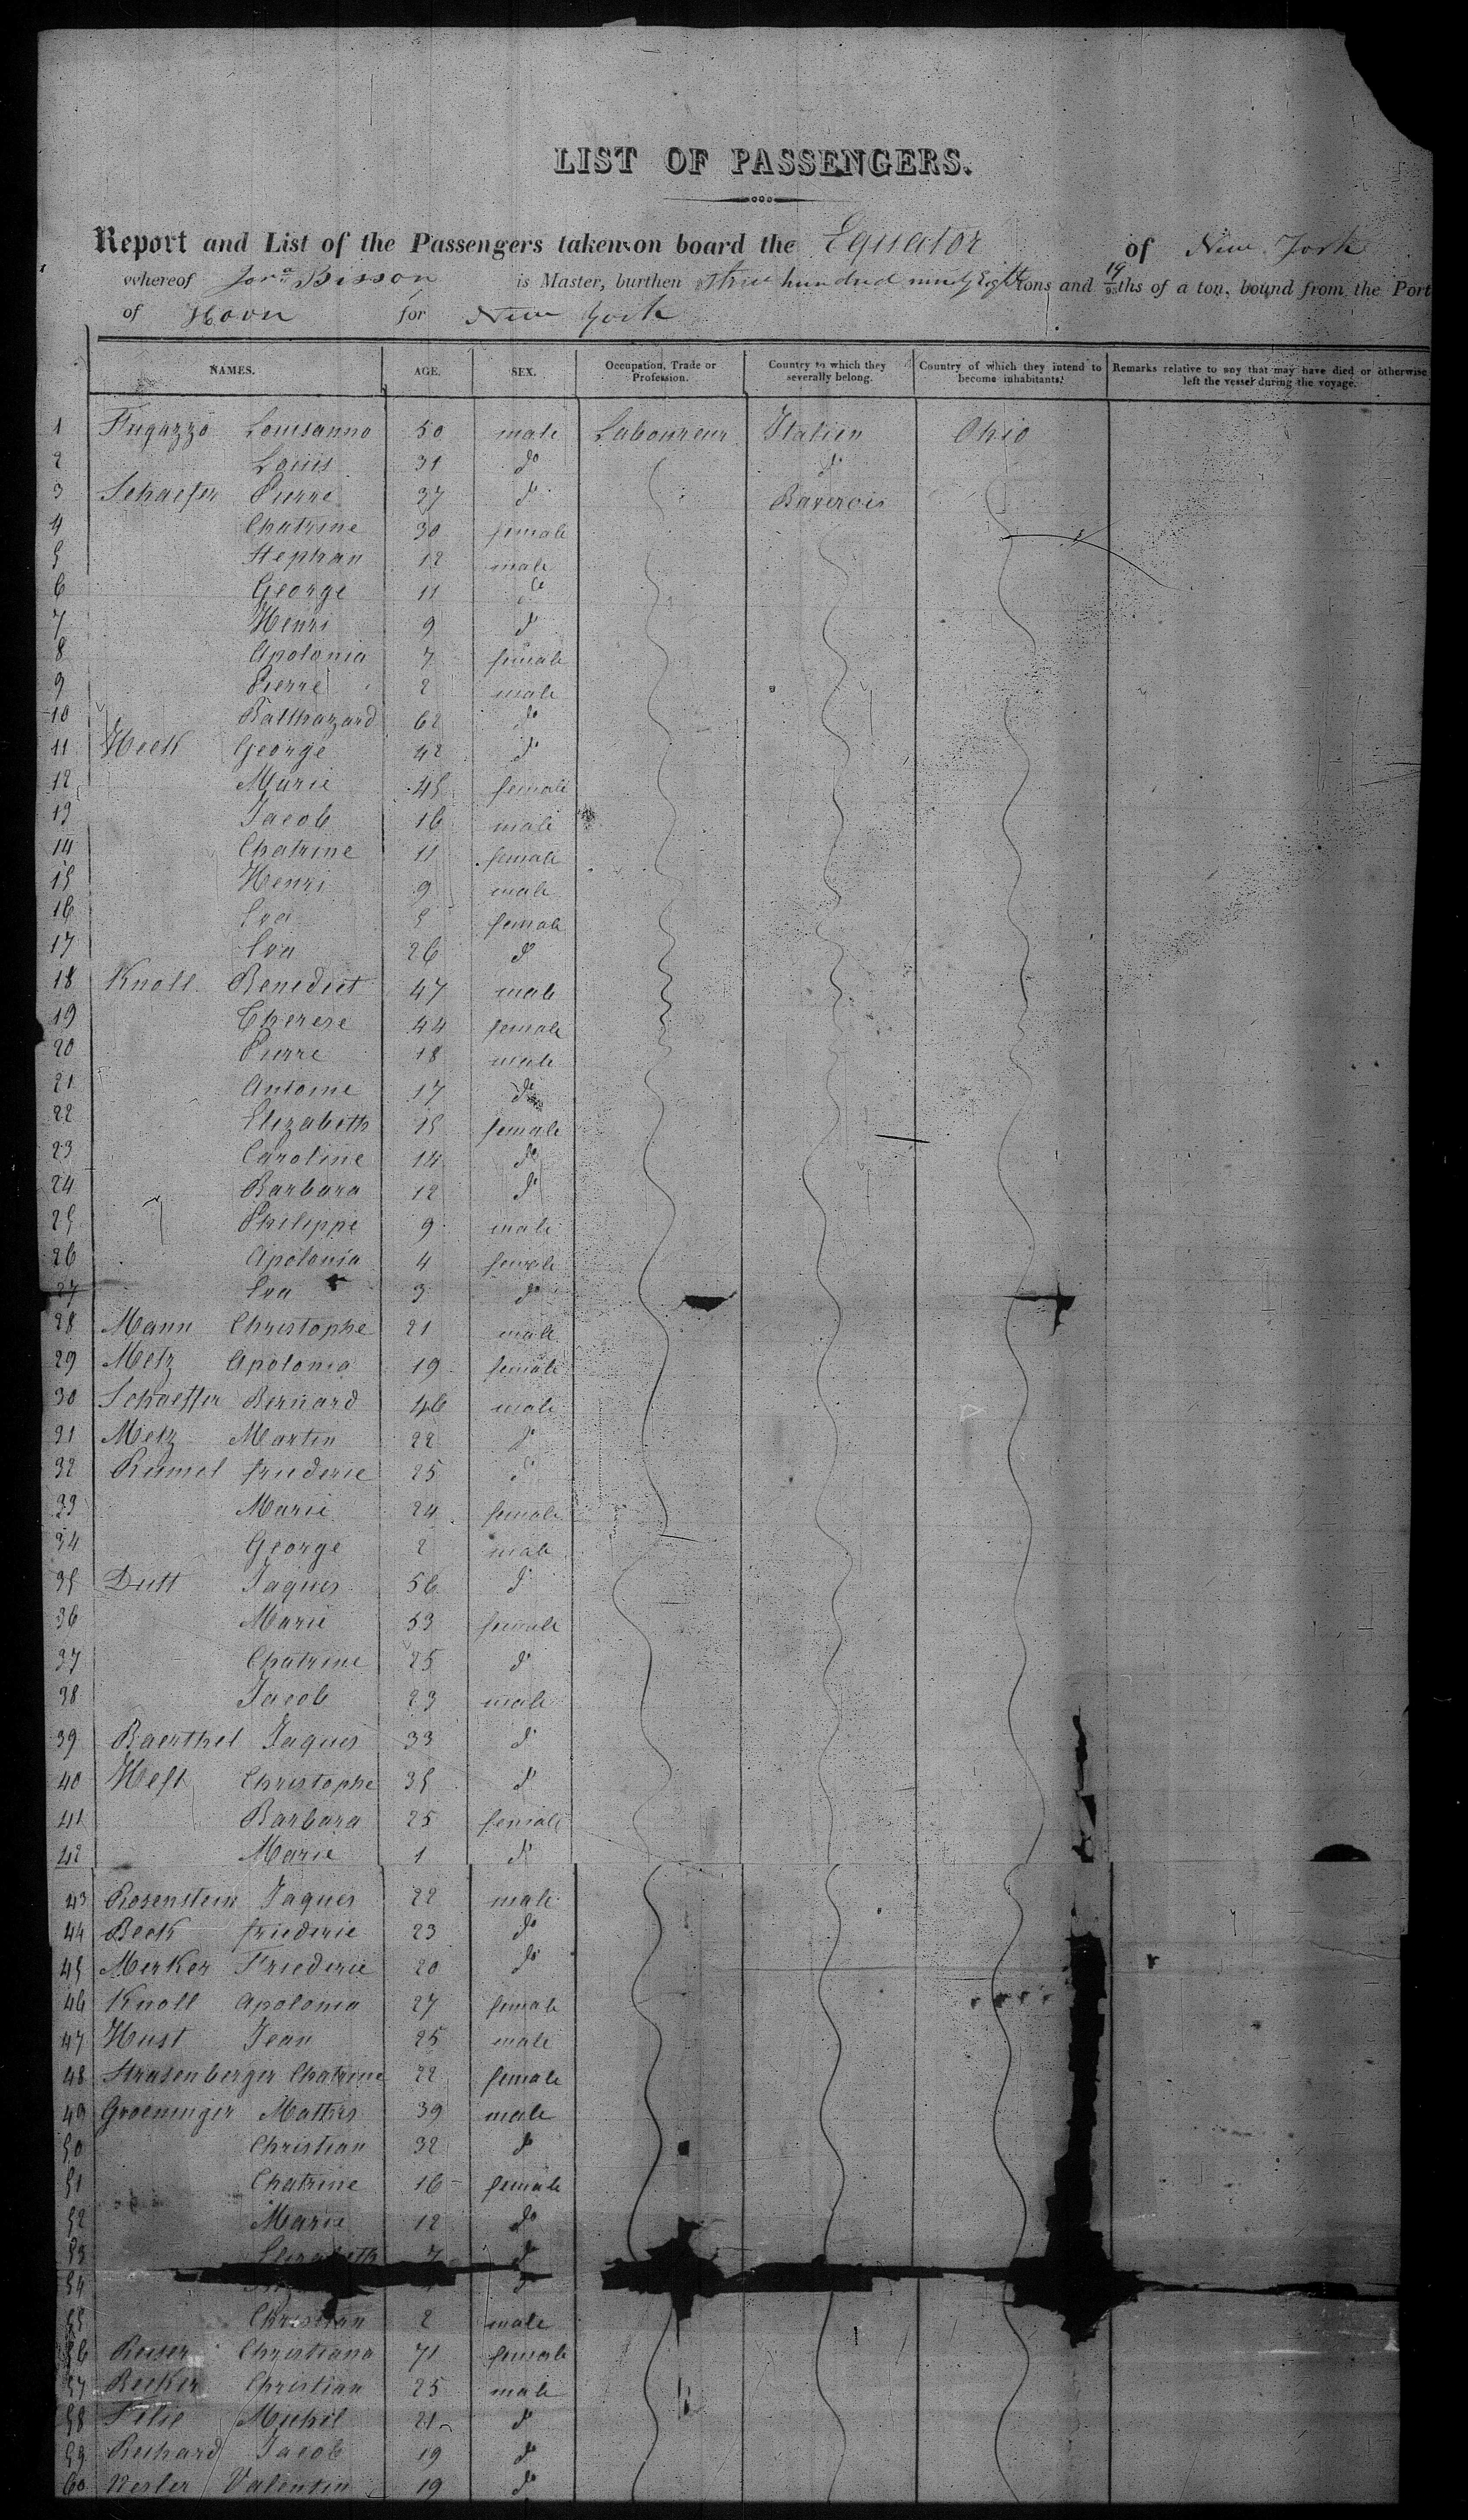 LIST OF PASSENGERS.
Report and List of the Passengers taken on board the Equator of New York
whereof Jon.a Bisson is Master, burthen three hundred ninety Eight tons and 19/95ths of a ton, bound from the Port
of Havre for New York
NAMES. AGE. SEX. Occupation, Trade or Profession. Country to which they severally belong. Country of which they intend to become inhabitants. Remarks relative to any that may have died or otherwise left the vessel during the voyage.
1 Fugazzo Louisanno 50 male Laboureur Italien Ohio
2 Louis 31 do do
3 Schaefer Pierre 37 do Baverois
4 Chatrine 30 female
5 Stephan 12 male
6 George 11 do
7 Henri 9 do
8 Apolonia 7 female
9 Pierre 2 male
10 Balthazard 62 do
11 Heck George 42 do
12 Marie 45 female
13 Jacob 16 male
14 Chatrine 11 female
15 Henri 9 male
16 Eva 5 female
17 Eva 26 do
18 Knoll Benedict 47 male
19 Therese 44 female
20 Pierre 18 male
21 Antoine 17 do
22 Elizabeth 15 female
23 Caroline 14 do
24 Barbara 12 do
25 Philippe 9 male
26 Apolonia 4 female
27 Eva 3 do
28 Mann Christophe 21 male
29 Metz Apolonia 19 female
30 Schaeffer Bernard 46 male
31 Metz Martin 22 do
32 Rumel friederic 25 do
33 Marie 24 female
34 George 2 male
35 Dutt Jaques 56 do
36 Marie 53 female
37 Chatrine 25 do
38 Jacob 23 male
39 Baerthel Jaques 33 do
40 Heft Christophe 35 do
41 Barbara 25 female
42 Marie 1 do
43 Rosenstein Jaques 22 male
44 Beck friederic 23 do
45 Merker Friederic 20 do
46 Knoll Apolonia 27 female
47 Hust Jean 25 male
48 Strasenberger Chatrine 22 female
49 Groeninger Mathis 39 male
50 Christian 32 do
51 Chatrine 16 female
52 Marie 12 do
53 Elizabeth 7 do
54 do
55 Christian 2 male
56 Reiser Christiana 71 female
57 Becker Christian 25 male
58 Michel 21 do
59 Richard Jacob 19 do
60 Nesler Valentin 19 do